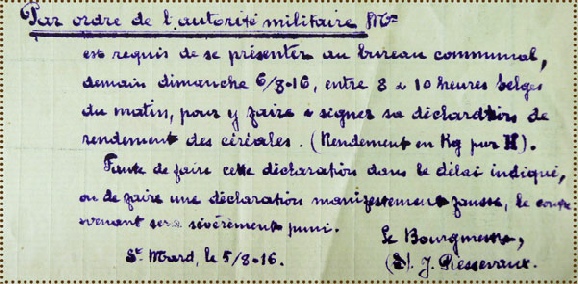 Par ordre de l'autorité militaire Mr
est requis de se présenter au bureau communal,
demain dimanche 6/8-16, entre 8 & 10 heures belges
du matin, pour y faire & signer sa déclaration de
rendement des céréales. (Rendement en Kg par H).
Faute de faire cette déclaration dans le délai indiqué,
ou de faire une déclaration manifestement fausse, le contre
venant sera sévèrement puni.
Le Bourgmestre,
St Mard, le 5/8-16.
(s). J.